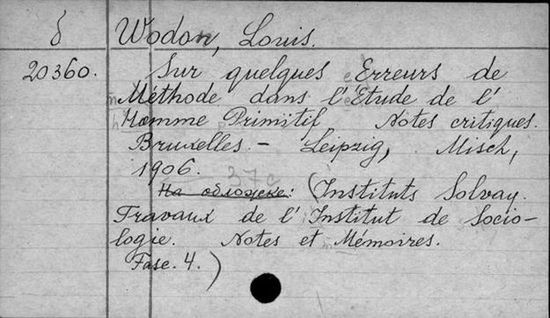 δ Wodon, Louis.
20360. Sur quelques Erreurs de
Méthode dans l'Etude de l'
Homme Primitif Notes critiques.
Bruxelles. - Leipzig, Misch,
1906. 37 c
На обложке: (Instituts Solvay.
Travaux de l'Institut de Socio-
logie. Notes et Mémoires.
Fasc. 4.)